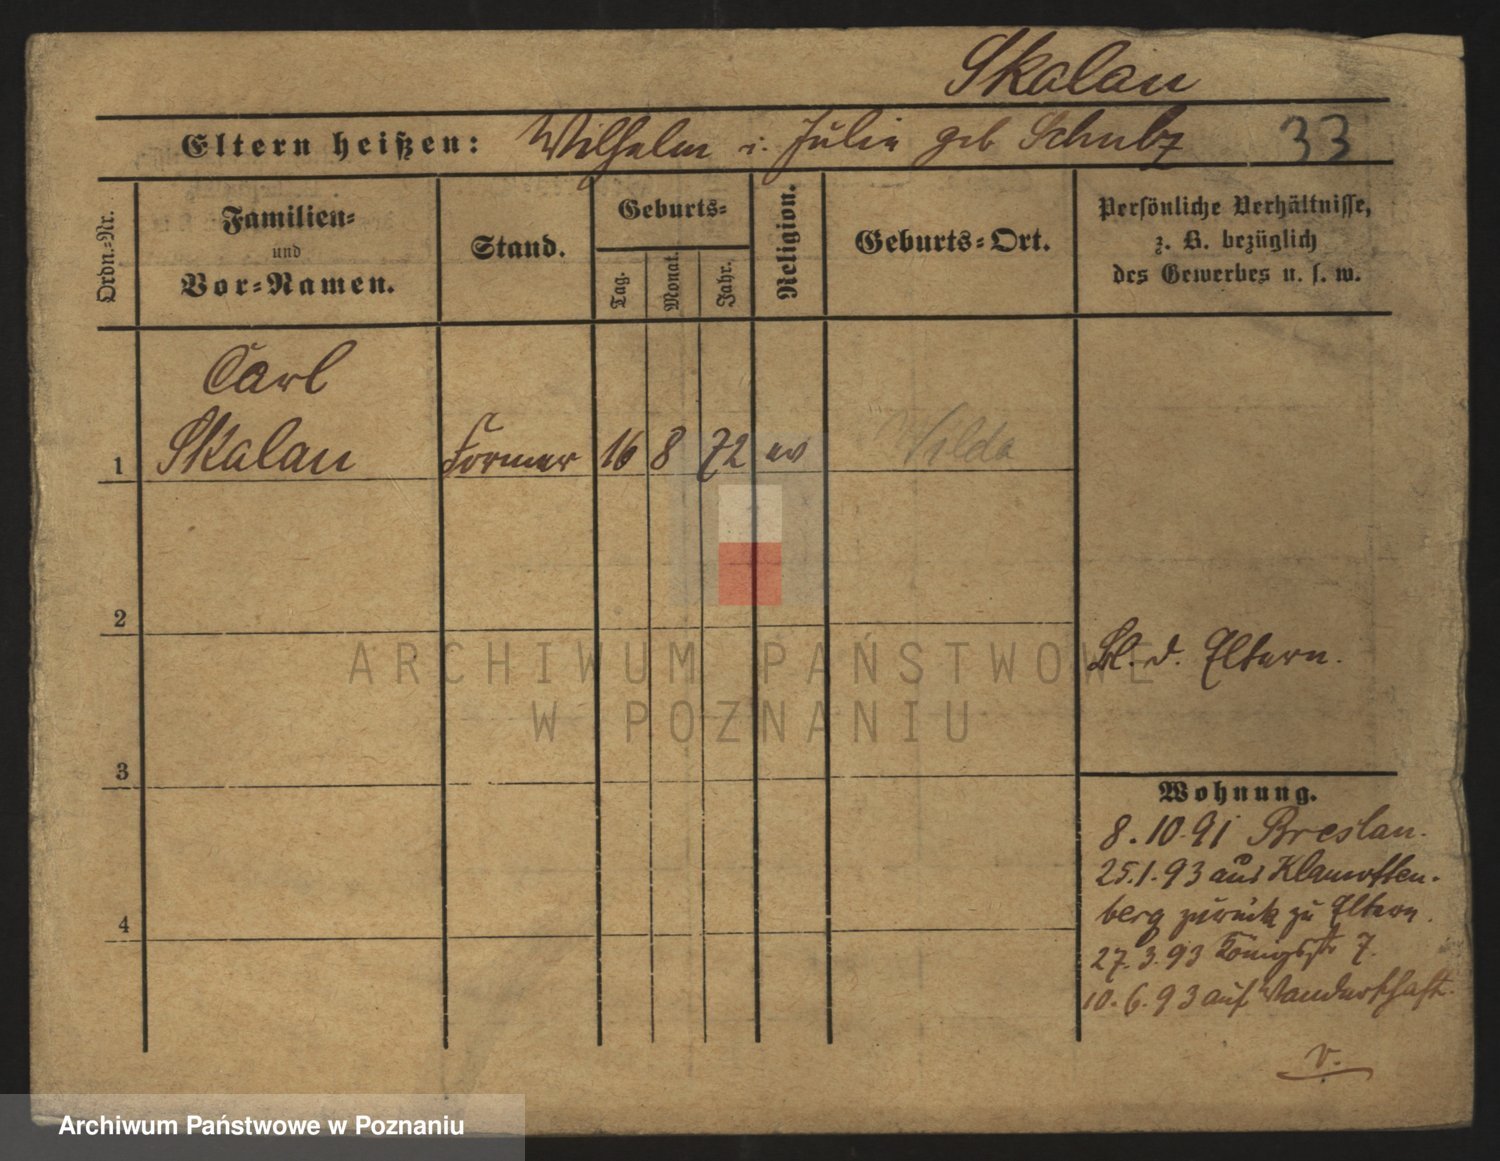 Skalau
Eltern heißen: Wilhelm u. Julie geb Schulz 33
Ordn.-Nr.
Familien-
und
Vor-Namen.
Stand.
Geburts-
Tag.
Monat.
Jahr.
Religion.
Geburts-Ort.
Persönliche Verhältnisse,
z. B. bezüglich
des Gewerbes u. s. w.
Carl
1 Skalau Former 16 8 72 ev Wilda
2
d. Eltern.
3
Wohnung.
8.10.91 Breslau.
25.1.93 aus
berg zurück zu Eltern.
4
27.3.93 Königsstr 7.
10.6.93 auf Wanderschaft.
v.
ARCHIWUM PAŃSTWOWE
W POZNANIU
Archiwum Państwowe w Poznaniu